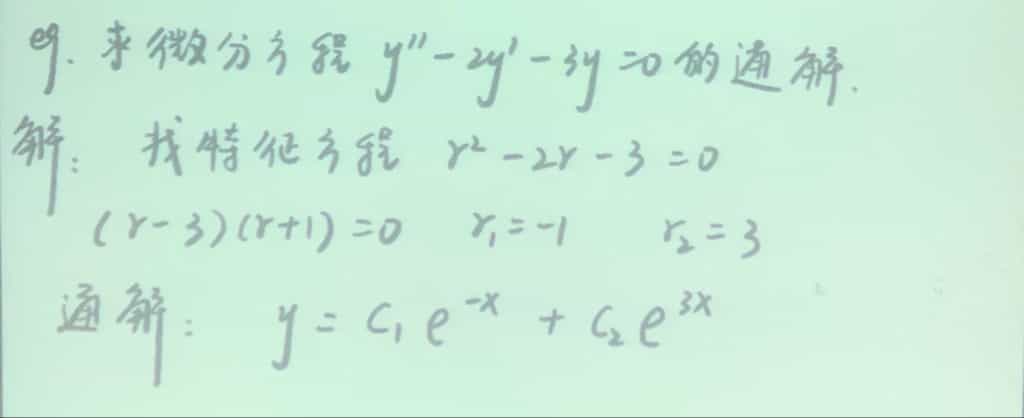 eg. 求微分方程 y'' - 2y' - 3y = 0 的通解.
解: 找特征方程 r² - 2r - 3 = 0
(r - 3)(r + 1) = 0 r₁ = -1 r₂ = 3
通解: y = C₁ e⁻ˣ + C₂ e³ˣ